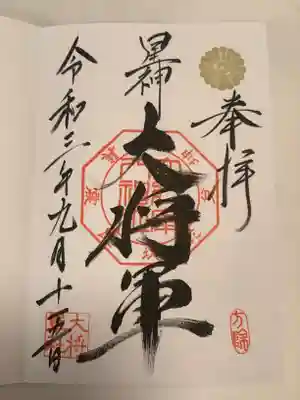 奉拝
方除
星神
大将軍
令和三年九月十五日